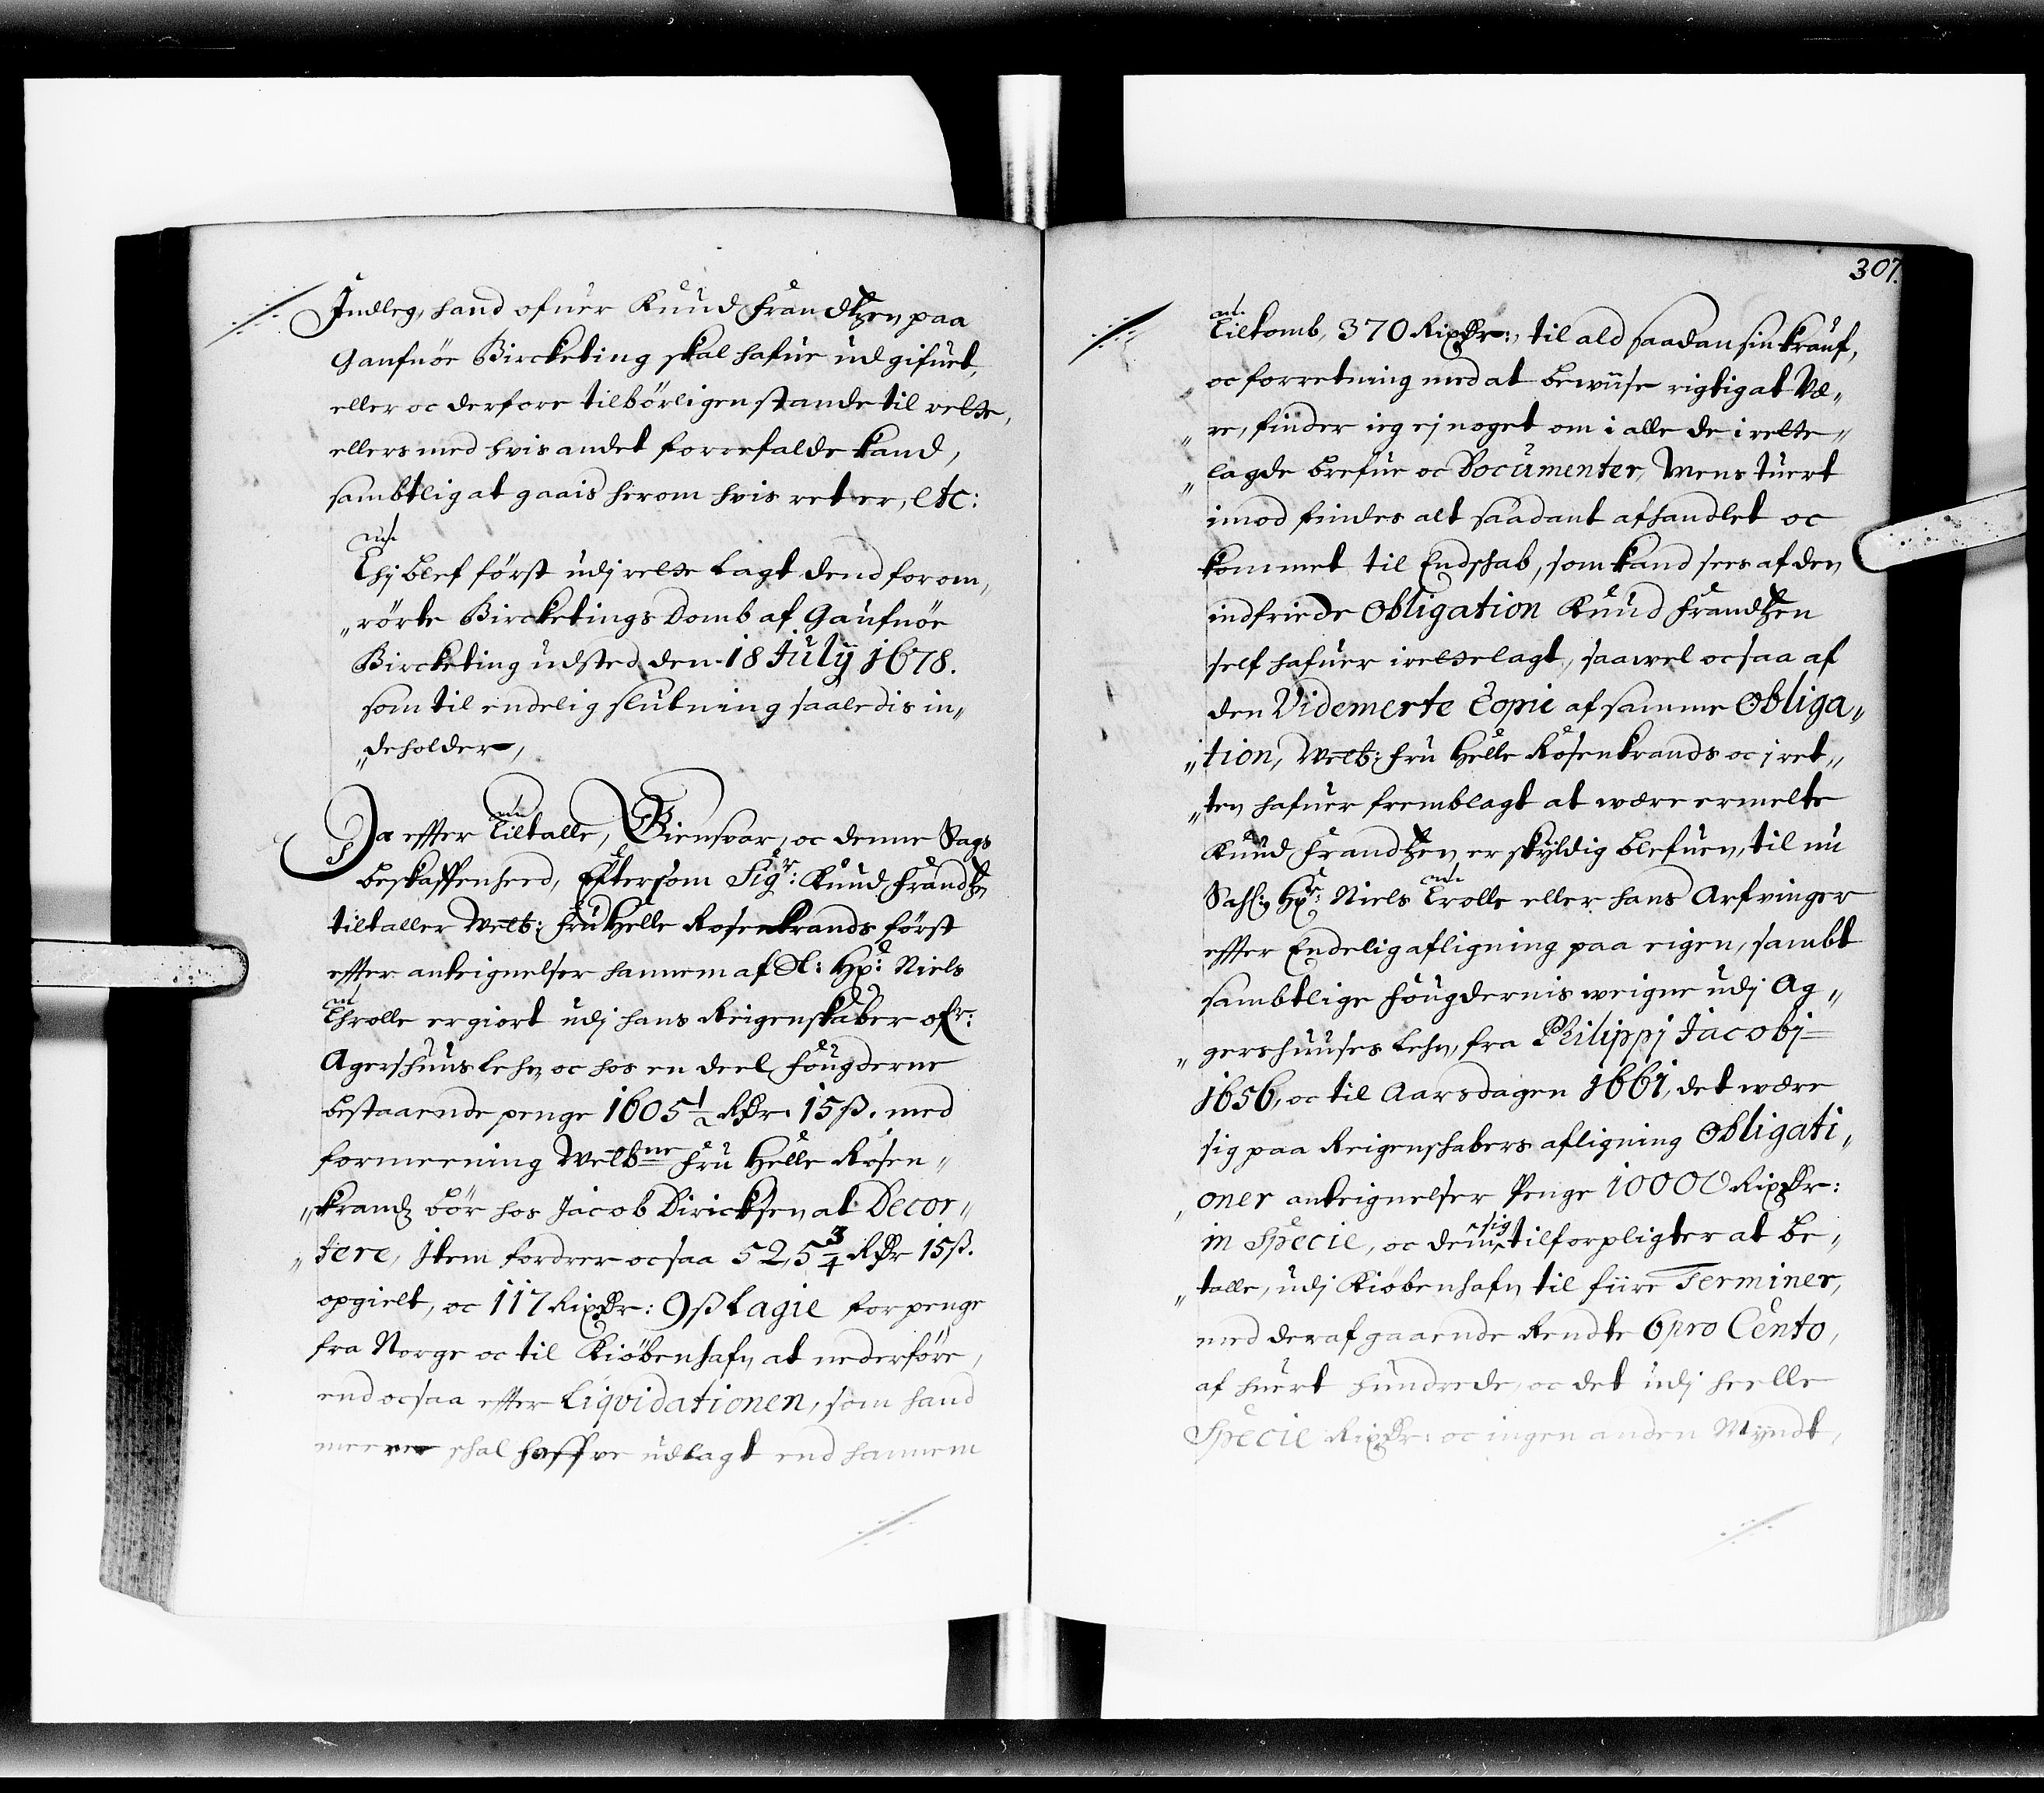 Indleg, hand ofuer Knud Frandtzen paa
Gaufnöe Bircketing skal hafue udgifuet,
eller oc derfore tilbörligen stande til rette,
ellers med hvis andet forrefalde kand,
sambtlig at gaais herom hvis ret er, etc:
Thj blef först udj rette lagt dend forom,
„rörte Bircketings Domb af Gaufnöe
Bircketing udsted den 18 Julÿ 1678.
som til endelig slutning saaledis in„
„deholder,
Da effter Tiltalle, Giensvar, oc denne Sags
beskaffenheed, Efftersom Sigr: Knud Frandtzen
tiltaller Welb: Fru Helle Rosenkrands först
effter anteignelser hannem af Sl: Hr: Niels
Throlle er giort udj hans Reigenskaber ofr:
Agershuus Lehn, oc hos en deel fougderne
bestaaende penge 1605½ Rdr. 15 ß. med
formeening Welbne Fru Helle Rosen„
„krandz bör hos Jacob Diricksen at Decor„
„tere, Item fordrer ocsaa 52,5¾ Rdr 15 ß.
opgielt, oc 117 Rixdr: 9 ß Lagie for penge
fra Norge oc til Kiöbenhafn at nederföre,
end ocsaa effter Liqvidationen, som hand
meere skal haffve udlagt end hannem
307.
Tilkomb, 370 Rixdr:, til ald saadan sin krauf,
„oc forretning med at bewiise rigtig at Væ„
„re, finder ieg ej noget om i alle de i rette„
„lagde brefue oc Documenter, Mens tuert
imod findes alt saadant afhandlet oc
kommet til Endskab, som kand sees af den
indfriede Obligation Knud Frandtzen
self hafuer i rette lagt, saa wel ocsaa af
den Videmerte Copie af samme Obliga„
„tion, Welb: Fru Helle Rosenkrands oc i ret„
„ten hafuer fremblagt at wære ermelte
Knud Frandtzen er skÿldig blefuen, til nu
Sahl: Hr: Niels Trolle eller hans Arfvinger
effter Endelig afligning paa eigen, sambt
sambtlige fougdernis weigne udj Ag„
„gershuuses Lehn, fra Philippj Jacobj
1656, oc til Aarsdagen 1661, det wære
sig paa Reigenschabers afligning Obligati„
„oner anteignelser Penge 10000 Rixdr:
in Specie, oc dem sig tilforpligter at be„
„talle, udj Kiöbenhafn til fiire Terminer,
med deraf gaaende Rendte 6 pro Cento,
af huert hundrede, oc det udj heelle
Specie Rixdr: oc ingen anden Mÿndt,